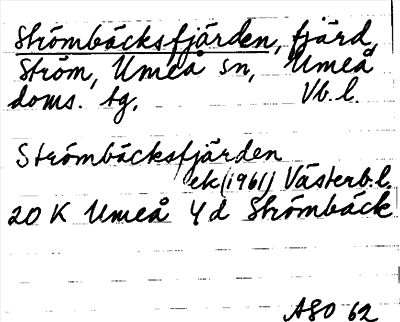 Strömbäcksfjärden, fjärd,
Ström, Umeå sn, Umeå
doms. tg. Vb. l.
Strömbäcksfjärden
ek (1961) Västerb. l.
20 K Umeå 4 d Strömbäck
ASO 62